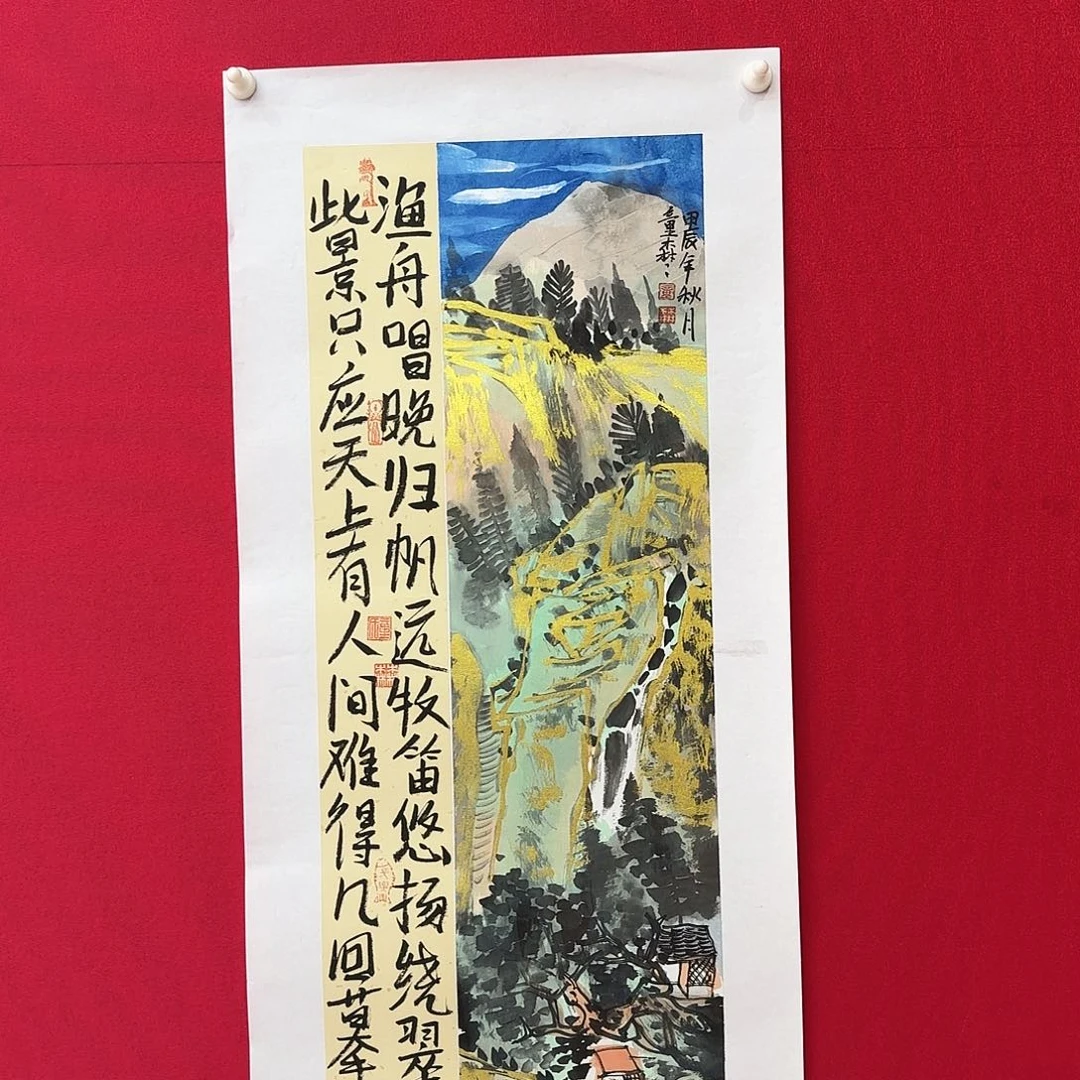 甲辰年秋月
童森
渔舟唱晚归帆远牧笛悠扬绕翠
此景只应天上有人间难得几回